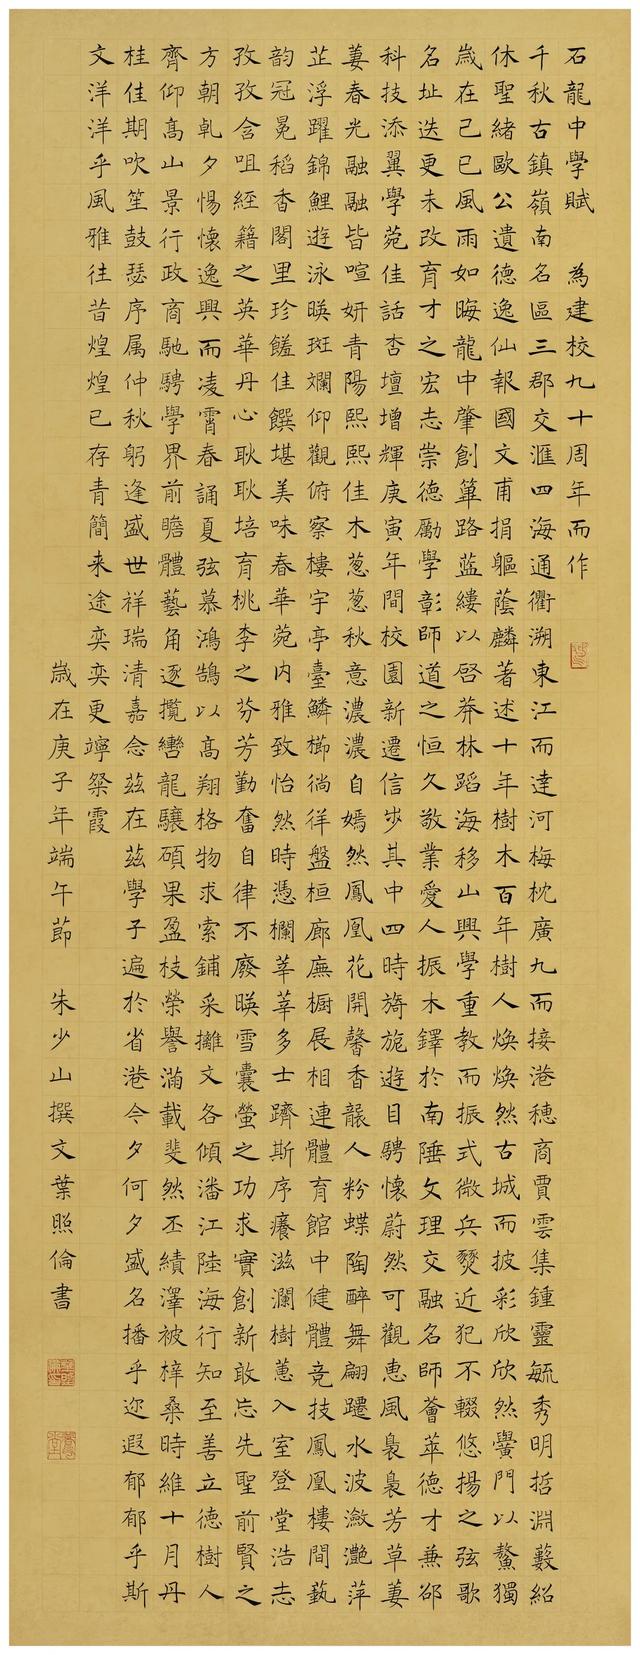 石龍中學賦　為建校九十周年而作
千秋古鎮嶺南名區三郡交滙四海通衢溯東江而達河梅枕廣九而接港穗商賈雲集鍾靈毓秀明哲淵藪紹
休聖緒歐公遺德逸仙報國文甫捐軀蔭麟著述十年樹木百年樹人煥煥然古城而披彩欣欣然黌門以鰲獨
歲在己巳風雨如晦龍中肇創篳路蓝縷以啓莽林蹈海移山興學重教而振式微兵燹近犯不輟悠揚之弦歌
名址迭更未改育才之宏志崇德勵學彰師道之恒久敬業愛人振木鐸於南陲文理交融名師薈萃德才兼邵
科技添翼學苑佳話杏壇增輝庚寅年間校園新遷信步其中四時旖旎遊目騁懷蔚然可觀惠風裊裊芳草萋
萋春光融融皆喧妍青陽熙熙佳木葱葱秋意濃濃自嫣然鳳凰花開馨香襲人粉蝶陶醉舞翩躚水波瀲灔萍
芷浮躍錦鯉遊泳暎斑斕仰觀俯察樓宇亭臺鱗櫛徜徉盤桓廊廡櫥展相連體育館中健體竞技鳳凰樓間藝
韵冠冕稻香閣里珍饈佳饌堪美味春華菀内雅致怡然時憑欄莘莘多士躋斯序癢滋瀾樹蕙入室登堂浩志
孜孜含咀經籍之英華丹心耿耿培育桃李之芬芳勤奮自律不廢暎雪囊螢之功求實創新敢忘先聖前賢之
方朝乹夕惕懷逸興而凌霄春誦夏弦慕鴻鵠以高翔格物求索鋪采摛文各傾潘江陸海行知至善立德樹人
齊仰高山景行政商馳騁學界前瞻體藝角逐攬轡龍驤碩果盈枝榮譽滿載斐然丕績澤被梓桑時維十月丹
桂佳期吹笙鼓瑟序属仲秋躬逢盛世祥瑞清嘉念茲在茲學子遍於省港今夕何夕盛名播乎迩遐郁郁乎斯
文洋洋乎風雅往昔煌煌已存青簡来途奕奕更竫粲霞
歲在庚子年端午節　朱少山撰文葉照倫書